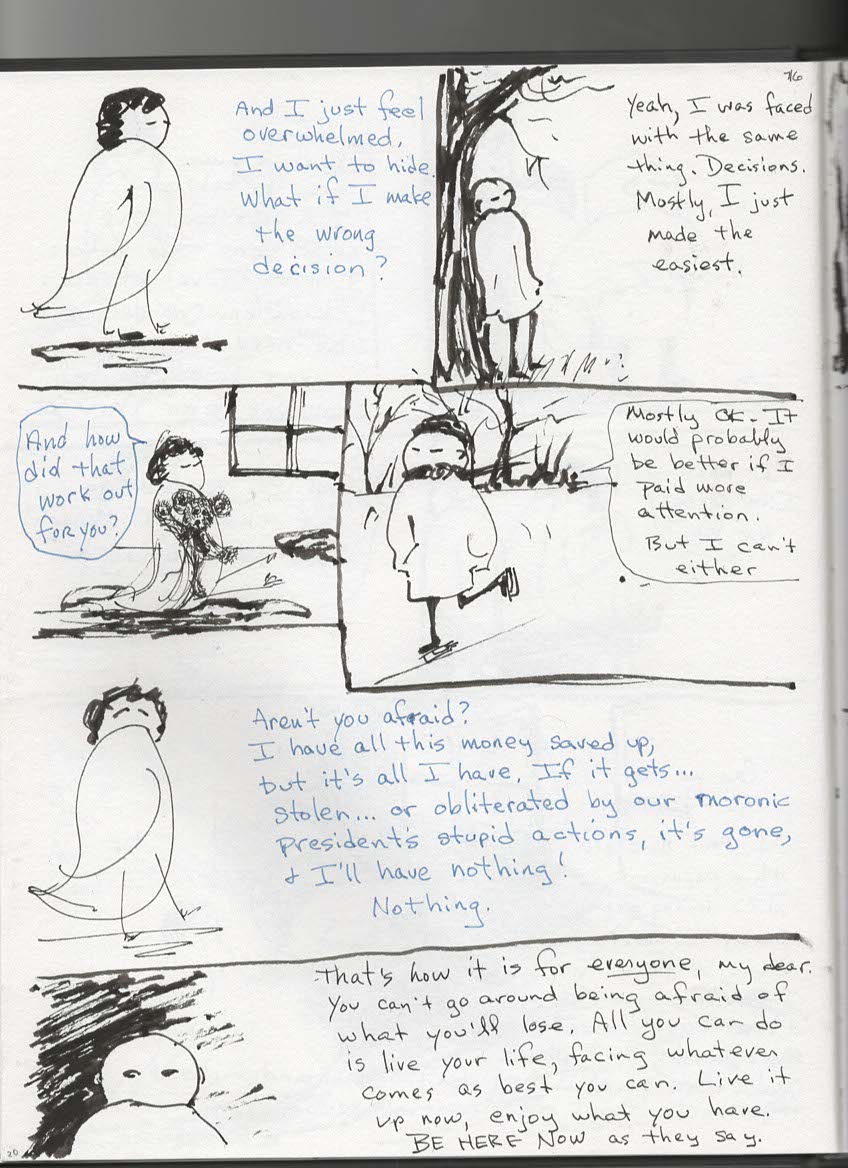 76
And I just feel
overwhelmed.
I want to hide.
What if I make
the wrong
decision?
Yeah, I was faced
with the same
thing. Decisions.
Mostly, I just
made the
easiest.
And how
did that
work out
for you?
Mostly OK. It
would probably
be better if I
paid more
attention.
But I can't
either
Aren't you afraid?
I have all this money saved up,
but it's all I have. If it gets...
stolen... or obliterated by our moronic
president's stupid actions, it's gone,
& I'll have nothing!
Nothing.
That's how it is for everyone, my dear.
You can't go around being afraid of
what you'll lose. All you can do
is live your life, facing whatever
comes as best you can. Live it
up now, enjoy what you have.
BE HERE NOW as they say.
20